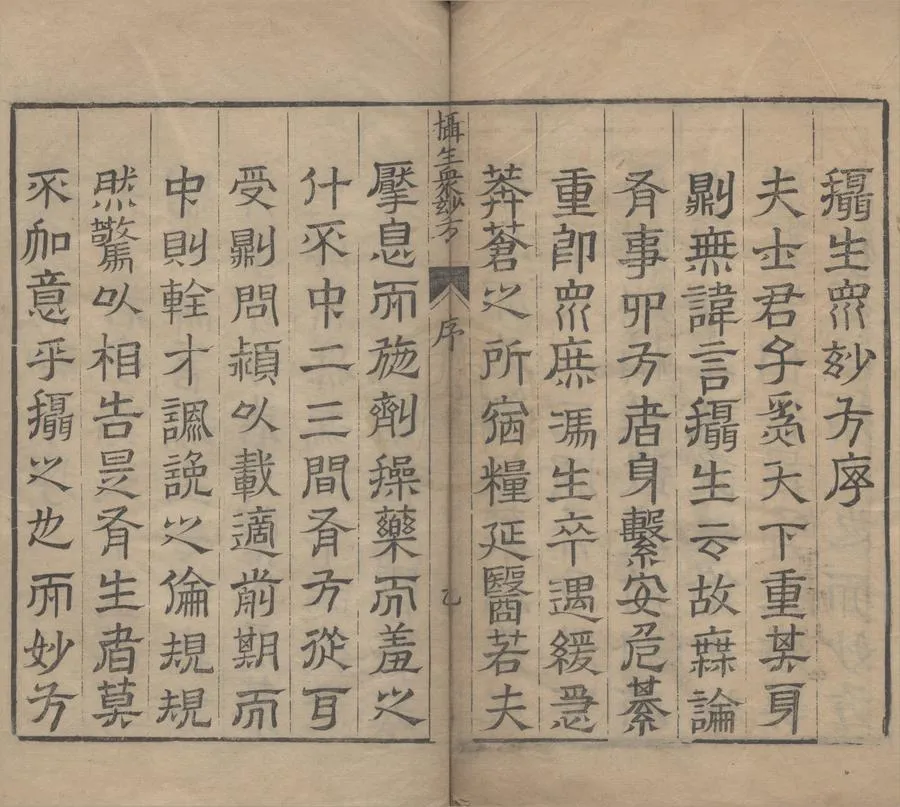 攝生眾妙方序
夫士君子爲天下重其身
則無諱言攝生云故論
有事四方者身繫安危綦
重即眾庶馮生卒遇緩急
莽蒼之所宿糧延醫若夫
攝生眾妙方 序 乙
擪息而施劑操藥而羞之
什不中二三間有方從耳
受則問以載適前期而
中則輇才諷說之倫規規
然驚以相告是有生者莫
不加意乎攝之也而妙方